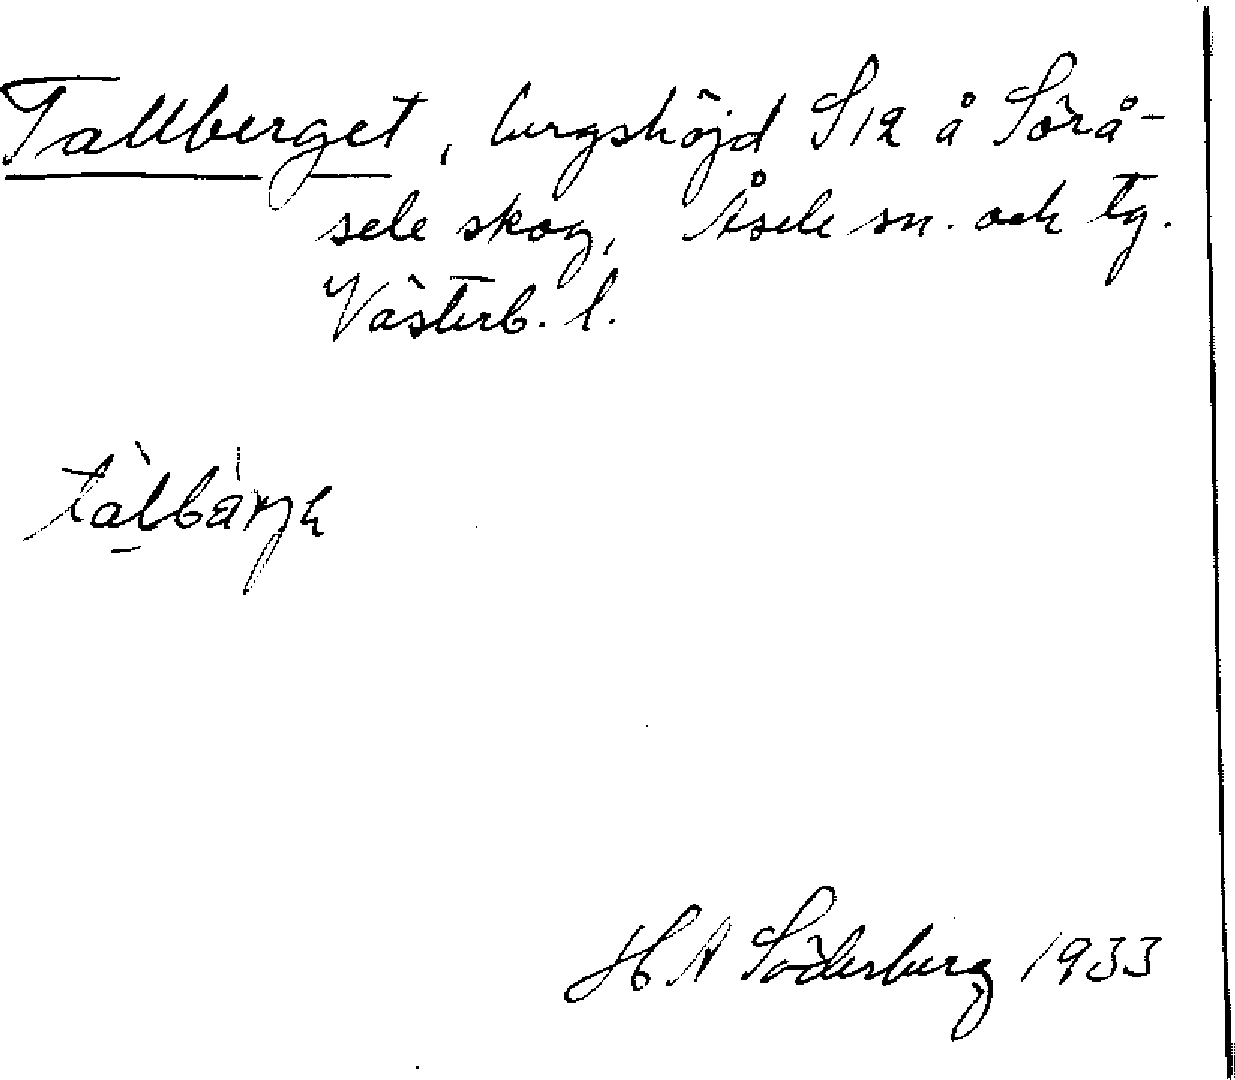 Tallberget, bergshöjd S12 å Sörå-
sele skog, Åsele sn. och tg.
Västerb. l.
tàlbärjə
H A Söderberg 1933